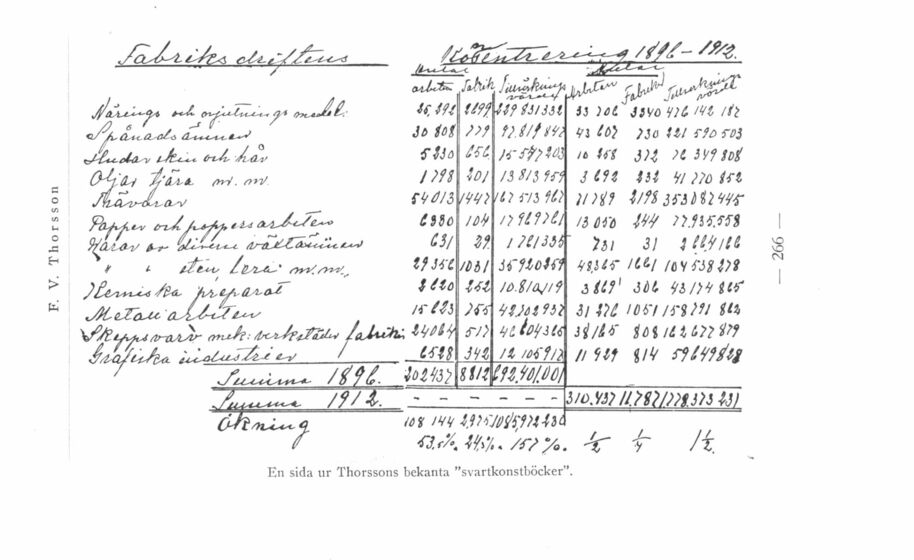 Fabriksdriftens Koncentrering 1896-1912.
Antal Antal
arbetare Fabrik Tillverknings värde Arbetare Fabrik Tillverknings värde
Närings och njutnings medel: 2699 229 831 332 33 706 3340 476 142 182
Spånadsämnen 30 808 779 97.819 847 43 607 730 221 590 503
Hudar skin och hår 5230 656 15 547 203 10 258 372 76 349 808
Oljor tjära m. m. 1798 201 13 813 959 3 692 232 41 770 852
Trävaror 54013 1447 71789 2198 353 087 445
Papper och pappersarbeten 6980 104 13 050 244 77.935,558
Varor av diverse växtämnen 631 29 1 761 335 731 31
" " sten, lera m.m., 29356 1031 35 920 259 48,365 1661 104 538 278
Kemiska preparat 2620 252 3 869 306 43 174 865
Metallarbeten 15 623 755 31 276 1051
Skeppsvarv mek: verkstäder fabriks 24064 517 38 165 808 162 677 879
Grafiska industrier 6528 342 12 105 917 11 929 814
Summa 1896. 202437 8812 692.401,001
Summa 1912. - - - - - - 310.437 11,787 1,778.373 231
Ökning 108 144 2,975 1085,972 230
53,5%. 24,5%. 157 %. 1/2 1/4 1 1/2.
En sida ur Thorssons bekanta "svartkonstböcker".
F. V. Thorsson
— 266 —